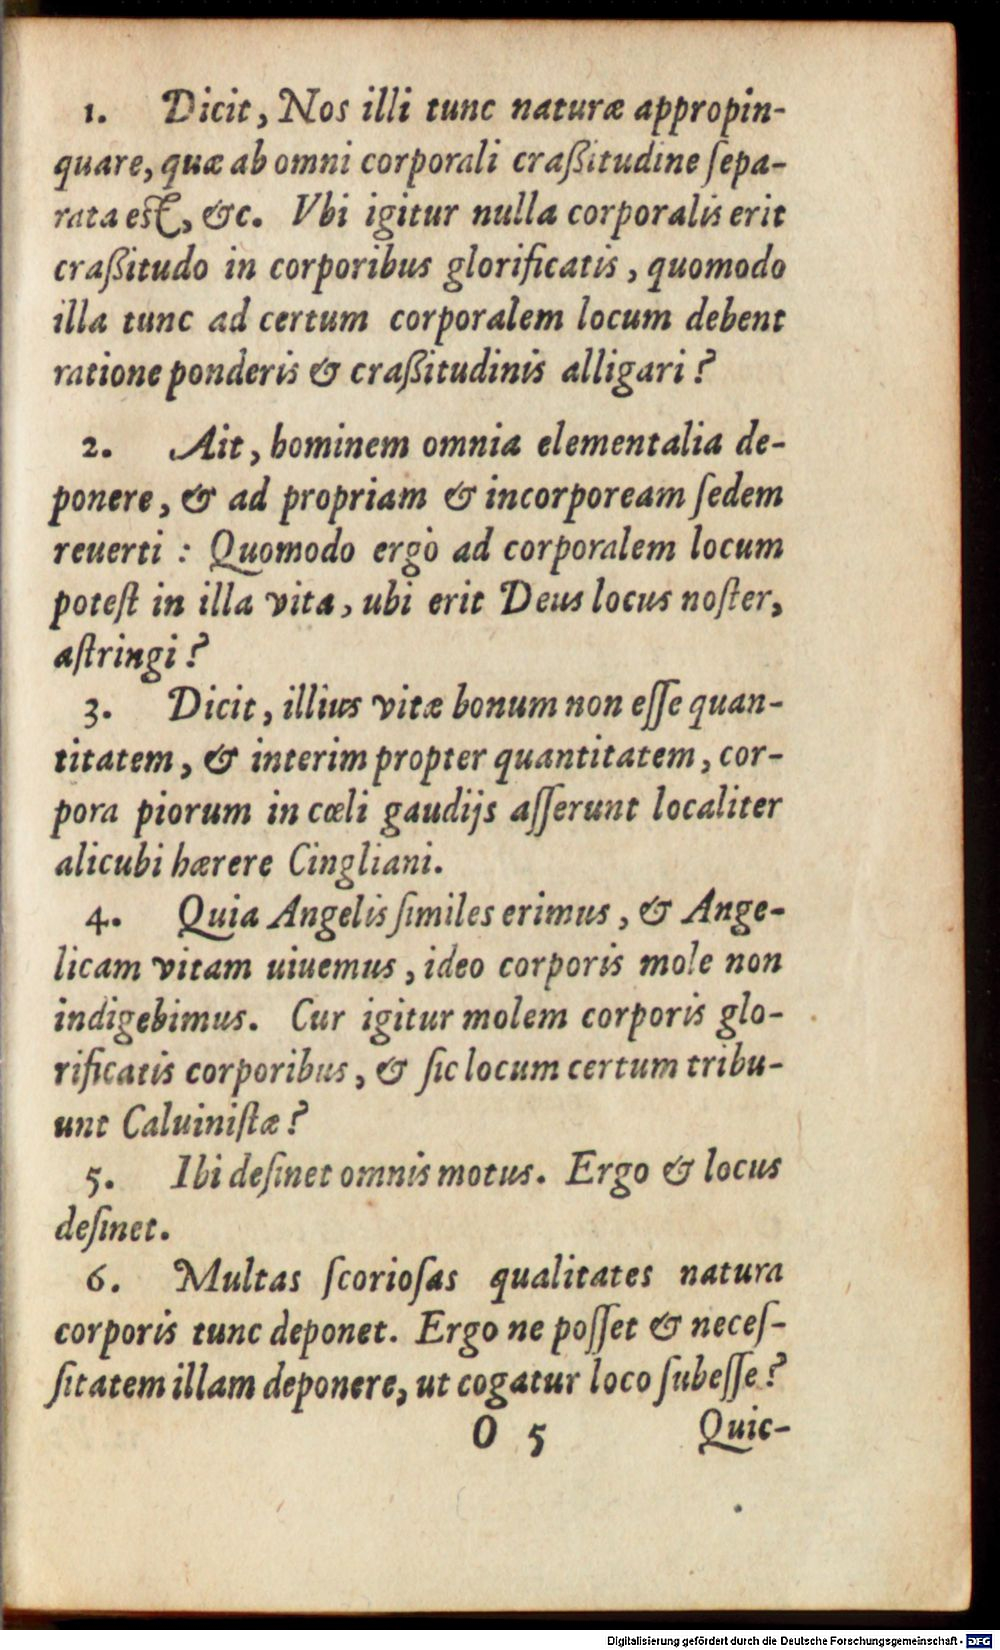 1. Dicit, Nos illi tunc naturæ appropin-
quare, quæ ab omni corporali craßitudine ſepa-
rata est, &c. Vbi igitur nulla corporalis erit
craßitudo in corporibus glorificatis, quomodo
illa tunc ad certum corporalem locum debent
ratione ponderis & craßitudinis alligari?
2. Ait, hominem omnia elementalia de-
ponere, & ad propriam & incorpoream ſedem
reuerti : Quomodo ergò ad corporalem locum
poteſt in illa vita, ubi erit Deus locus noſter,
aſtringi?
3. Dicit, illius vitæ bonum non eſſe quan-
titatem, & interim propter quantitatem, cor-
pora piorum in cœli gaudijs aſſerunt localiter
alicubi hærere Cingliani.
4. Quia Angelis ſimiles erimus, & Ange-
licam vitam uiuemus, ideo corporis mole non
indigebimus. Cur igitur molem corporis glo-
rificatis corporibus, & ſic locum certum tribu-
unt Caluiniſtæ?
5. Ibi deſinet omnis motus. Ergo & locus
deſinet.
6. Multas ſcorioſas qualitates natura
corporis tunc deponet. Ergo ne poſſet & neceſ-
ſitatem illam deponere, ut cogatur loco ſubeſſe?
O 5 Quic-
Digitalisierung gefördert durch die Deutsche Forschungsgemeinschaft - DFG